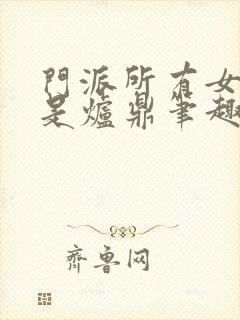 門派所有女
是爐鼎筆趣
齊魯网